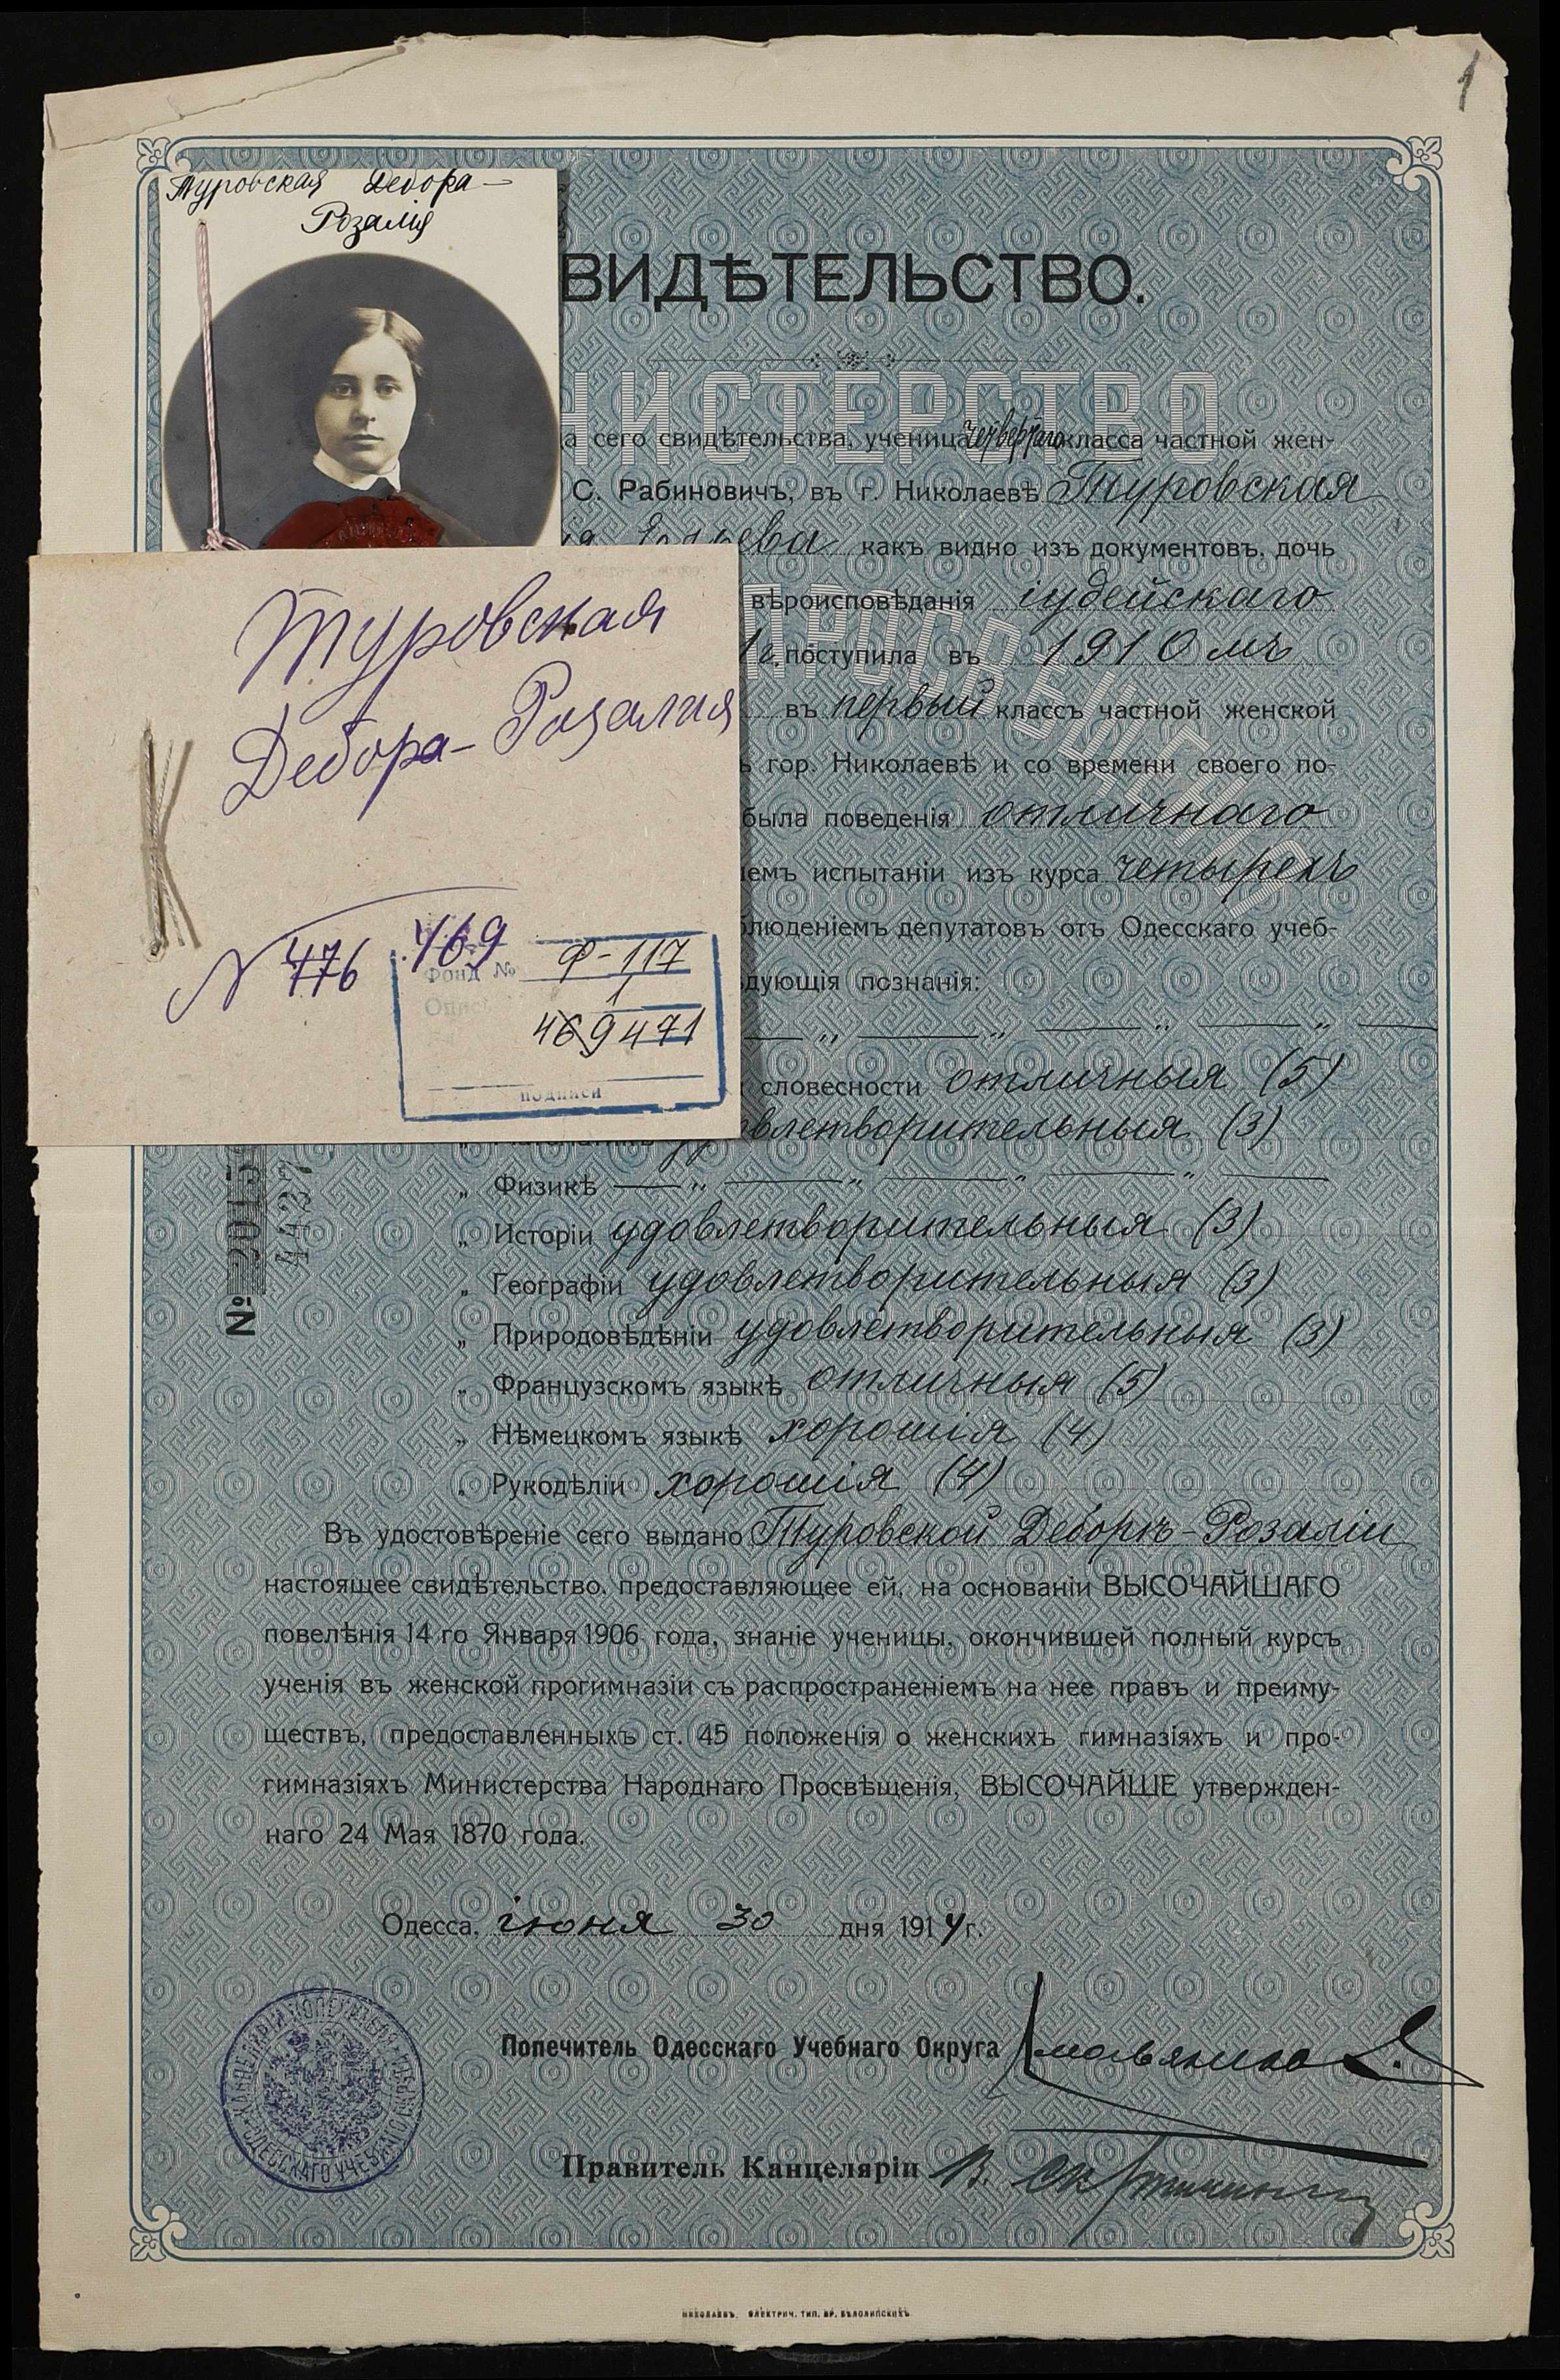 1
Туровская Дебора-
Розалія
ВИДѢТЕЛЬСТВО.
НИСТЕРСТВО
а сего свидѣтельства, ученица четвертаго класса частной жен-
С. Рабиновичъ, въ г. Николаевѣ Туровская
какъ видно изъ документовъ, дочь
вѣроисповѣданія іудейскаго
поступила въ 1910 мъ
въ первый классъ частной женской
гор. Николаевѣ и со времени своего по-
была поведенія отличнаго
емъ испытаніи изъ курса четырехъ
блюденіемъ депутатовъ отъ Одесскаго учеб-
дующія познанія:
словесности отличныя (5)
влетворительныя (3)
„ Физикѣ — „ — „ — „ — „ —
„ Исторіи удовлетворительныя (3)
„ Географіи удовлетворительныя (3)
„ Природовѣдѣніи удовлетворительныя (3)
„ Французскомъ языкѣ отличныя (5)
„ Нѣмецкомъ языкѣ хорошія (4)
„ Рукодѣліи хорошія (4)
Въ удостовѣреніе сего выдано Туровской Деборѣ-Розаліи
настоящее свидѣтельство, предоставляющее ей, на основаніи ВЫСОЧАЙШАГО
повелѣнія 14 го Января 1906 года, знаніе ученицы, окончившей полный курсъ
ученія въ женской прогимназіи съ распространеніемъ на нее правъ и преиму-
ществъ, предоставленныхъ ст. 45 положенія о женскихъ гимназіяхъ и про-
гимназіяхъ Министерства Народнаго Просвѣщенія, ВЫСОЧАЙШЕ утвержден-
наго 24 Мая 1870 года.
Одесса, іюня 30 дня 1914 г.
Попечитель Одесскаго Учебнаго Округа
Правитель Канцеляріи
НИКОЛАЕВЪ. ЭЛЕКТРИЧ. ТИП. БР. БѢЛОЛИПСКИХЪ
Туровская
Дебора-Розалия
N 476 469
Фонд № Ф-117
Опис 1
469 471
подписи
№
4437
ПРОСВѢЩЕНІЯ
КАНЦЕЛЯРІЯ ПОПЕЧИТЕЛЯ ОДЕССКАГО УЧЕБНАГО